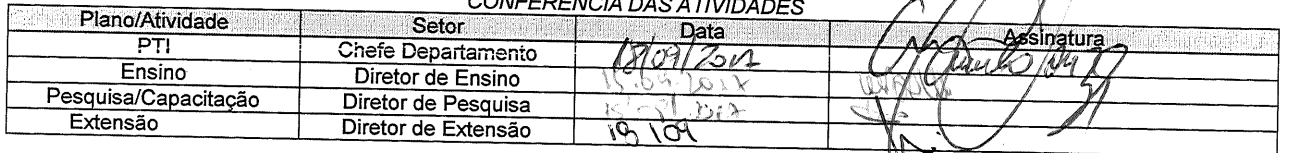 CONFERÊNCIA DAS ATIVIDADES
Plano/Atividade Setor Data Assinatura
PTI Chefe Departamento 18/09/2017
Ensino Diretor de Ensino
Pesquisa/Capacitação Diretor de Pesquisa
Extensão Diretor de Extensão 18/09